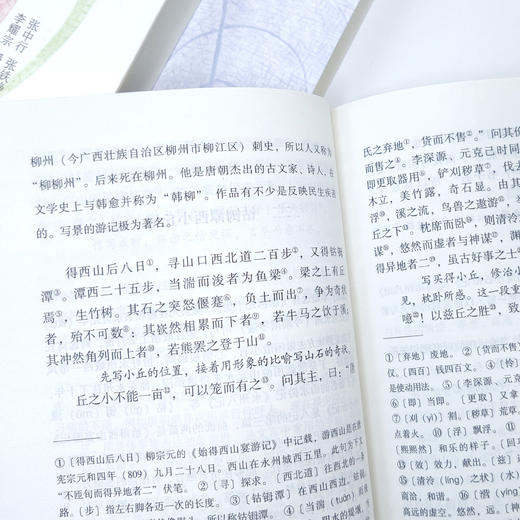 张中行
张铁
李耀宗
柳州（今广西壮族自治区柳州市柳江区）刺史，所以人又称为
“柳柳州”。后来死在柳州。他是唐朝杰出的古文家、诗人，在
文学史上与韩愈并称为“韩柳”。作品有不少是反映民生疾苦
的。写景的游记极为著名。
得西山后八日①，寻山口西北道二百步②，又得钴鉧
潭③。潭西二十五步，当湍而浚者为鱼梁④。梁之上有丘
焉⑤，生竹树。其石之突怒偃蹇⑥，负土而出⑦，争为奇状
者，殆不可数⑧：其嵚然相累而下者⑨，若牛马之饮于溪；
其冲然角列而上者⑩，若熊罴之登于山⑪。
先写小丘的位置，接着用形象的比喻写山石的奇状。
丘之小不能一亩⑫，可以笼而有之⑬。问其主，曰：“唐
①〔得西山后八日〕柳宗元的《始得西山宴游记》中记载，游西山是在
宪宗元和四年（809）九月二十八日。西山在永州城西五里。此句为下文
“不匝旬而得异地者二”伏笔。②〔寻〕探求。〔西北道〕往西北的一条
路。〔步〕指左右脚各迈一次的长度。③〔钴鉧潭〕在西山西边。钴鉧，
④〔当湍（tuān）而
氏之弃地①，货而不售②。”问其
而售之③。李深源、元克己时同
即更取器用⑥，铲刈秽草⑦，伐
木立，美竹露，奇石显。由其
浮⑧，溪之流，鸟兽之遨游
丘之下⑩。枕席而卧，则清泠
谋，悠然而虚者与神谋，渊
得异地者二，虽古好事之士
写买得小丘，修治小
见，枕卧所感。这一段重
噫！以兹丘之胜，致
①〔弃地〕废地。②〔货而不售〕
仅。〔四百〕钱四百文。④〔怜〕
是使动用法。⑤〔李深源、元克
⑥〔即〕当即。〔更取〕又拿
⑦〔刈（yì）〕割。〔秽草〕荒草
点着火。⑧〔浮〕飘浮。
〔熙熙然〕和乐的样子。〔回
〔效〕效力，献出。〔兹〕这
〔清泠（líng）〕
商洽，和谐。〔营营〕
高远的虚空。〔悠然〕悠远